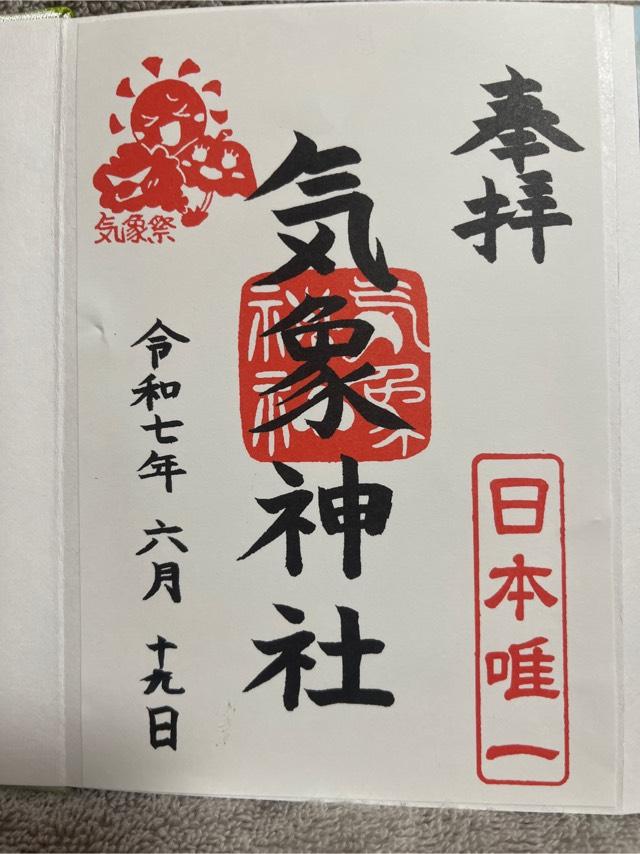 奉拝
日本唯一
気象神社
気象神社
気象祭
令和七年 六月 十九日